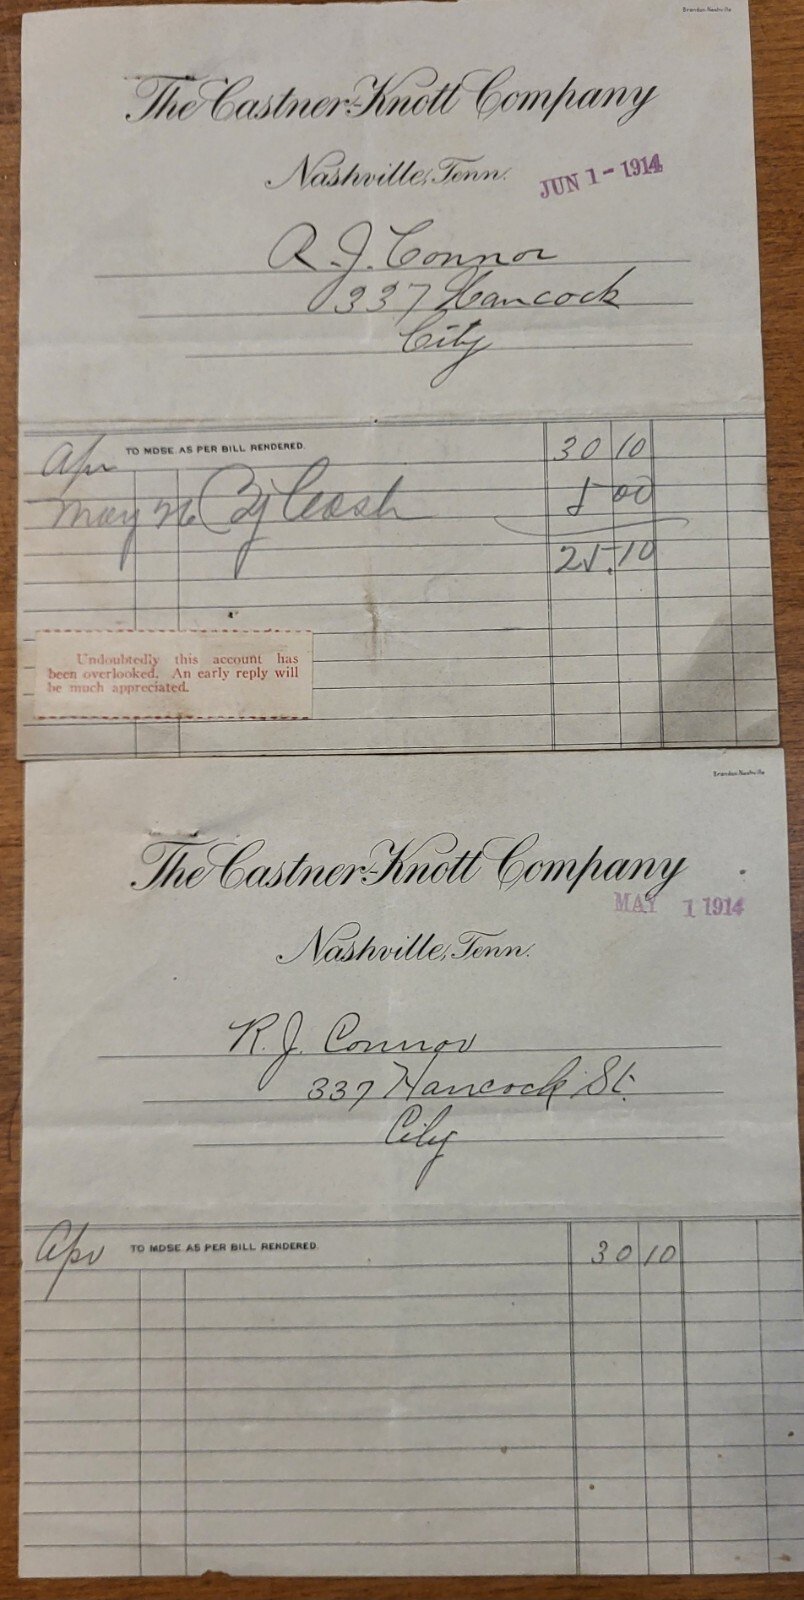 Brandon-Nashville
The Castner-Knott Company
Nashville, Tenn.
JUN 1 - 1914
R. J. Connor
337 Hancock
City
Apr TO MDSE. AS PER BILL RENDERED. 30 10
May 26 By Cash 5 00
25.10
Undoubtedly this account has
been overlooked. An early reply will
be much appreciated.
Brandon-Nashville
The Castner-Knott Company
MAY 1 1914
Nashville, Tenn.
R. J. Connor
337 Hancock St.
City
Apr TO MDSE. AS PER BILL RENDERED. 30 10